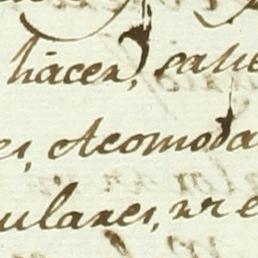 hacer, calie
es, etcomoda
ulares, nr e